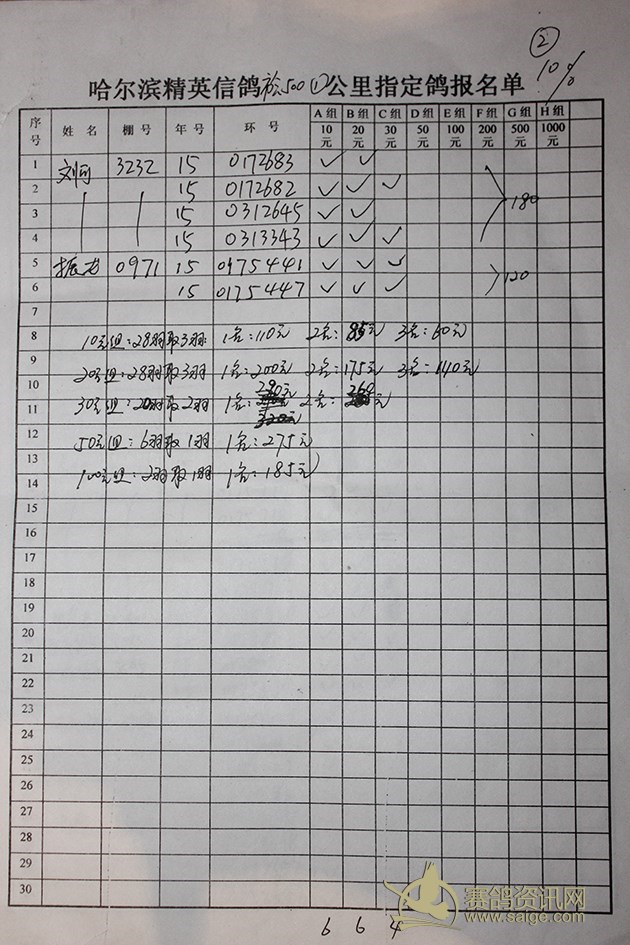 ②
10%
哈尔滨精英信鸽 秋500① 公里指定鸽报名单
序号 姓名 棚号 年号 环号 A组 10元 B组 20元 C组 30元 D组 50元 E组 100元 F组 200元 G组 500元 H组 1000元
1 3232 15 0172683 ✓ ✓
2 15 0172682 ✓ ✓ ✓
3 15 0312645 ✓ ✓ 180
4 15 0313343 ✓ ✓ ✓
5 振龙 0971 15 0175441 ✓ ✓ ✓
6 15 0175447 ✓ ✓ ✓ 120
7
8 10元组:28羽取3羽 1名:110元 2名:85元 3名:60元
9
10 20元组:28羽取3羽 1名:200元 2名:175元 3名:140元
11 30元组:20羽取2羽 1名:290元 2名:260元
12
13 50元组:6羽取1羽 1名:275元
14 100元组:2羽取1羽 1名:185元
15
16
17
18
19
20
21
22
23
24
25
26
27
28
29
30
6 6 4
赛鸽资讯网
www.saige.com